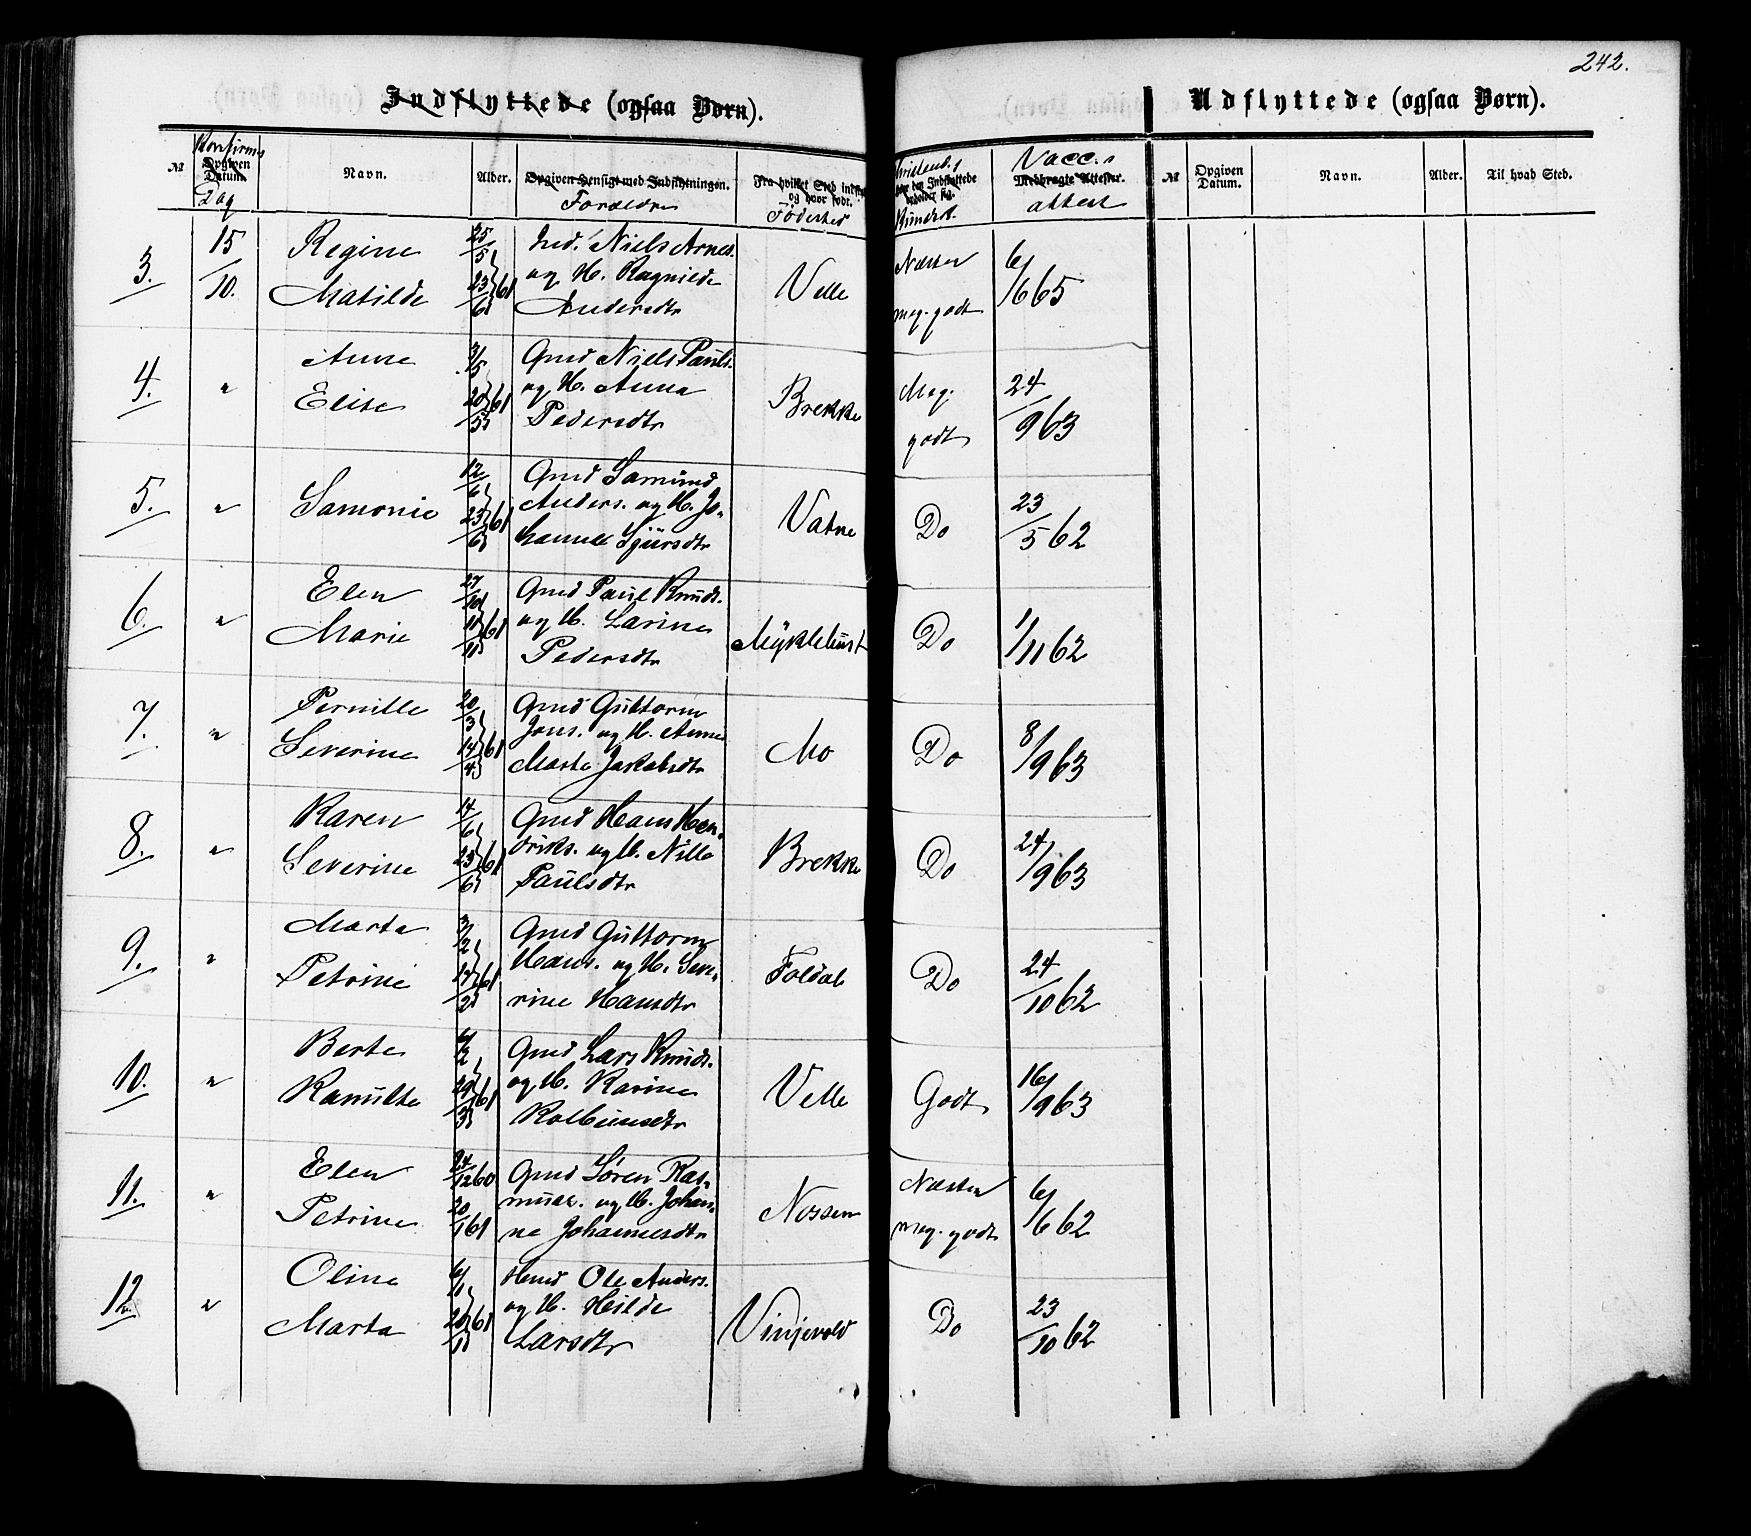 242.
Indflyttede (ogsaa Børn).
Udflyttede (ogsaa Børn).
№ Opgiven Datum. Navn. Alder. Opgiven Hensigt med Indflytningen.
Konfirms Dag
Forældre
Fødested
Kristend.s Kundsk.
Vacc.s attest
Medbragte Attester.
№ Opgiven Datum. Navn. Alder. Til hvad Sted.
3. 15/10. Regine Matilde 25/5 23/6 61
Ind. Niels Arnes.
og H. Ragnilde
Andersdtr
Velle
Næsten meg. godt
6/6 65
4. " Anne Elise 3/5 20/5 61
Gmd Niels Pauls.
og H. Anna
Pedersdtr
Brekke
Meg. godt
24/9 63
5. " Samonie 12/6 23/6 61
Gmd Samund
Anders. og H. Jo-
hanne Sjursdtr
Vatne
Do
23/5 62
6. " Elen Marie 27/10 10/11 61
Gmd Paul Knuds.
og H. Larine
Pedersdtr
Myklebust
Do
1/11 62
7. " Pernille Severine 20/3 14/4 61
Gmd Guttorm
Jons. og H. Anne
Marta Jakobsdtr
Mo
Do
8/9 63
8. " Karen Severine 14/6 23/6 61
Gmd Hans Hen-
driks. og H. Nille
Paulsdtr
Brekke
Do
24/9 63
9. " Marta Petrine 3/2 17/2 61
Gmd Guttorm
Hans. og H. Seve-
rine Hansdtr
Foldal
Do
24/10 62
10. " Berte Ramulte 6/2 29/3 61
Gmd Lars Knuds.
og H. Karine
Kolbeinsdtr
Velle
Godt
16/9 63
11. " Elen Petrine 24/12 60 20/1 61
Gmd Søren Ras-
muss. og H. Johan-
ne Johannesdtr
Nossen
Næsten meg. godt
6/6 62
12. " Oline Marta 6/1 20/1 61
Hmd Ole Anders.
og H. Hilde
Larsdtr
Vinjevold
Do
23/10 62